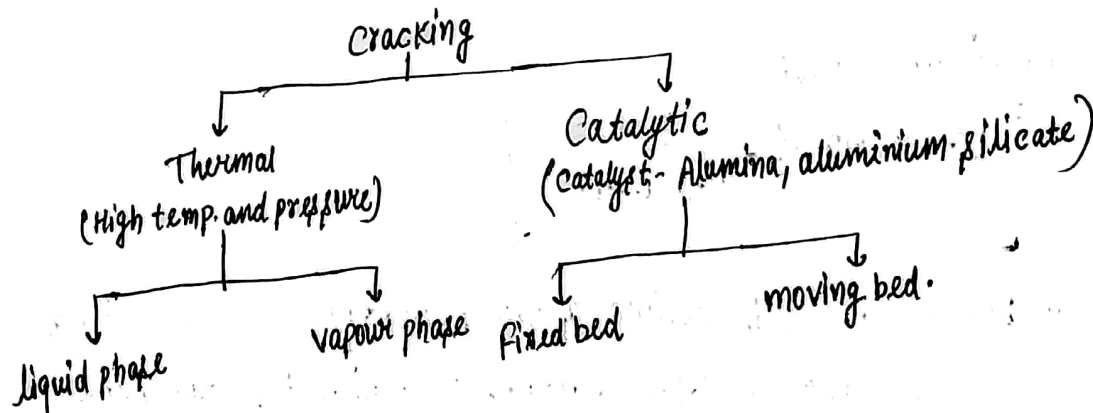 Cracking
Thermal
(High temp. and pressure)
Catalytic
(Catalyst- Alumina, aluminium silicate)
liquid phase
vapour phase
Fixed bed
moving bed.